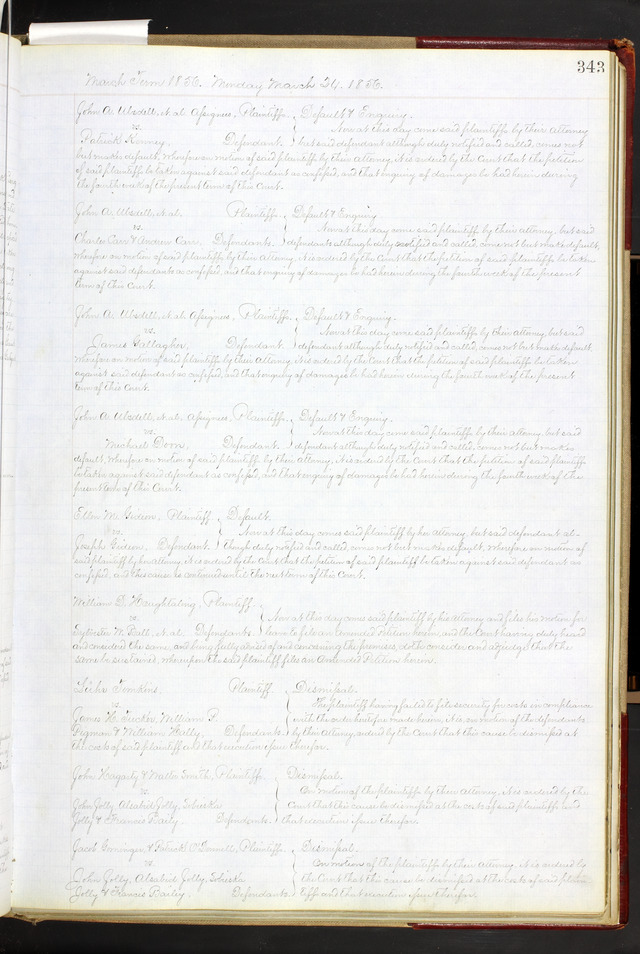 343
March Term 1856. Monday March 24. 1856.
John A. Ubsdell, et al. Assignees, Plaintiffs. Default & Enquiry.
Now at this day come said plaintiffs by their Attorney
vs.
Patrick Kenney, Defendant. but said defendant although duly notified and called, comes not
but makes default, Wherefore on motion of said plaintiffs by their Attorney, it is ordered by the Court that the petition
of said plaintiffs be taken against said defendant as confessed, and that enquiry of damages be had herein during
the fourth week of the present term of this Court.
John A. Ubsdell, et al. Plaintiffs. Default & Enquiry
Now at this day come said plaintiffs by their attorney, but said
vs.
Charles Carr & Andrew Carr, Defendants. defendants although duly notified and called, come not but make default,
wherefore on motion of said plaintiffs by their Attorney, it is ordered by the Court that the petition of said plaintiffs be taken
against said defendants as confessed, and that enquiry of damages be had herein during the fourth week of the present
term of this Court.
John A. Ubsdell, et al. Assignees, Plaintiffs. Default & Enquiry.
Now at this day come said plaintiffs by their attorney, but said
vs.
James Gallagher, Defendant. defendant although duly notified and called, comes not but makes default
wherefore on motion of said plaintiffs by their Attorney, it is ordered by the Court that the petition of said plaintiffs be taken
against said defendant as confessed, and that enquiry of damages be had herein during the fourth week of the present
term of this Court.
John A. Ubsdell, et al. Assignees, Plaintiffs. Default & Enquiry.
Now at this day come said plaintiffs by their attorney, but said
vs.
Michael Doon, Defendant. defendant although duly notified and called, comes not but makes
default, Wherefore on motion of said plaintiffs by their Attorney, it is ordered by the Court that the petition of said plaintiffs
be taken against said defendant as confessed, and that enquiry of damages be had herein during the fourth week of the
present term of this Court.
Ellen M. Gideon, Plaintiff. Default.
vs. Now at this day comes said plaintiff by her Attorney, but said defendant al-
Joseph Gideon, Defendant. though duly notified and called, comes not but makes default, Wherefore on motion of
said plaintiff by her attorney, it is ordered by the Court that the petition of said plaintiff be taken against said defendant as
confessed, and this cause is continued until the next term of this Court.
William D. Haughtaling, Plaintiff.
vs. Now at this day comes said plaintiff by his Attorney and files his motion for
Sylvester W. Ball, et al. Defendants. leave to file an Amended Petition herein, and the Court having duly heard
and considered the same, and being fully advised of and concerning the premises, doth consider and adjudge that the
same be sustained, whereupon the said plaintiff files an Amended Petition herein.
Tomkins, Plaintiff. Dismissal.
vs. The plaintiff having failed to file security for costs in compliance
James H. Tucker, William P. with the order heretofore made herein, it is, on motion of the defendants
& William Hally, Defendants. by their Attorney, ordered by the Court that this cause be dismissed at
the costs of said plaintiff and that execution issue therefor.
John Hagarty & Walter Smith, Plaintiffs. Dismissal.
vs. On motion of the plaintiffs by their Attorney, it is ordered by the
John Jolly, Jolly, Court that this cause be dismissed at the costs of said plaintiffs and
Jolly & Francis Baily. Defendants. that execution issue therefor.
Jacob & Patrick O'Donnell, Plaintiffs. Dismissal.
vs. On motion of the plaintiffs by their Attorney, it is ordered by
John Jolly, Jolly, the Court that this cause be dismissed at the costs of said plain-
Jolly & Francis Bailey. Defendants. tiffs and that execution issue therefor.